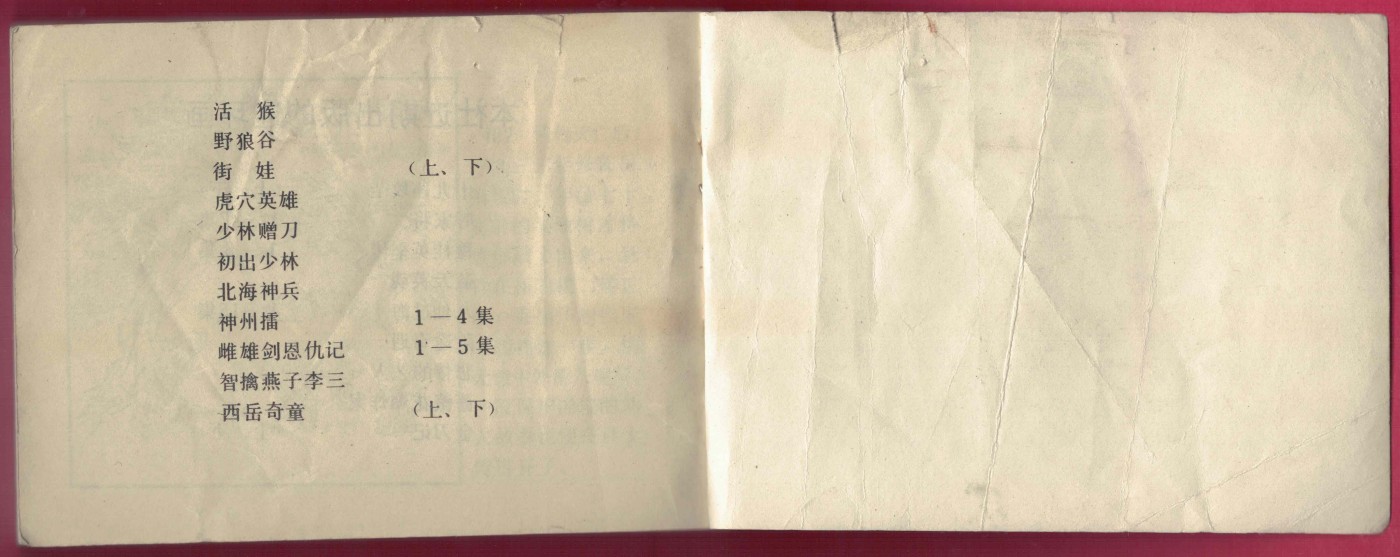 活　猴
野狼谷
街　娃　（上、下）
虎穴英雄
少林赠刀
初出少林
北海神兵
神州擂　1—4 集
雌雄剑恩仇记　1—5 集
智擒燕子李三
西岳奇童　（上、下）